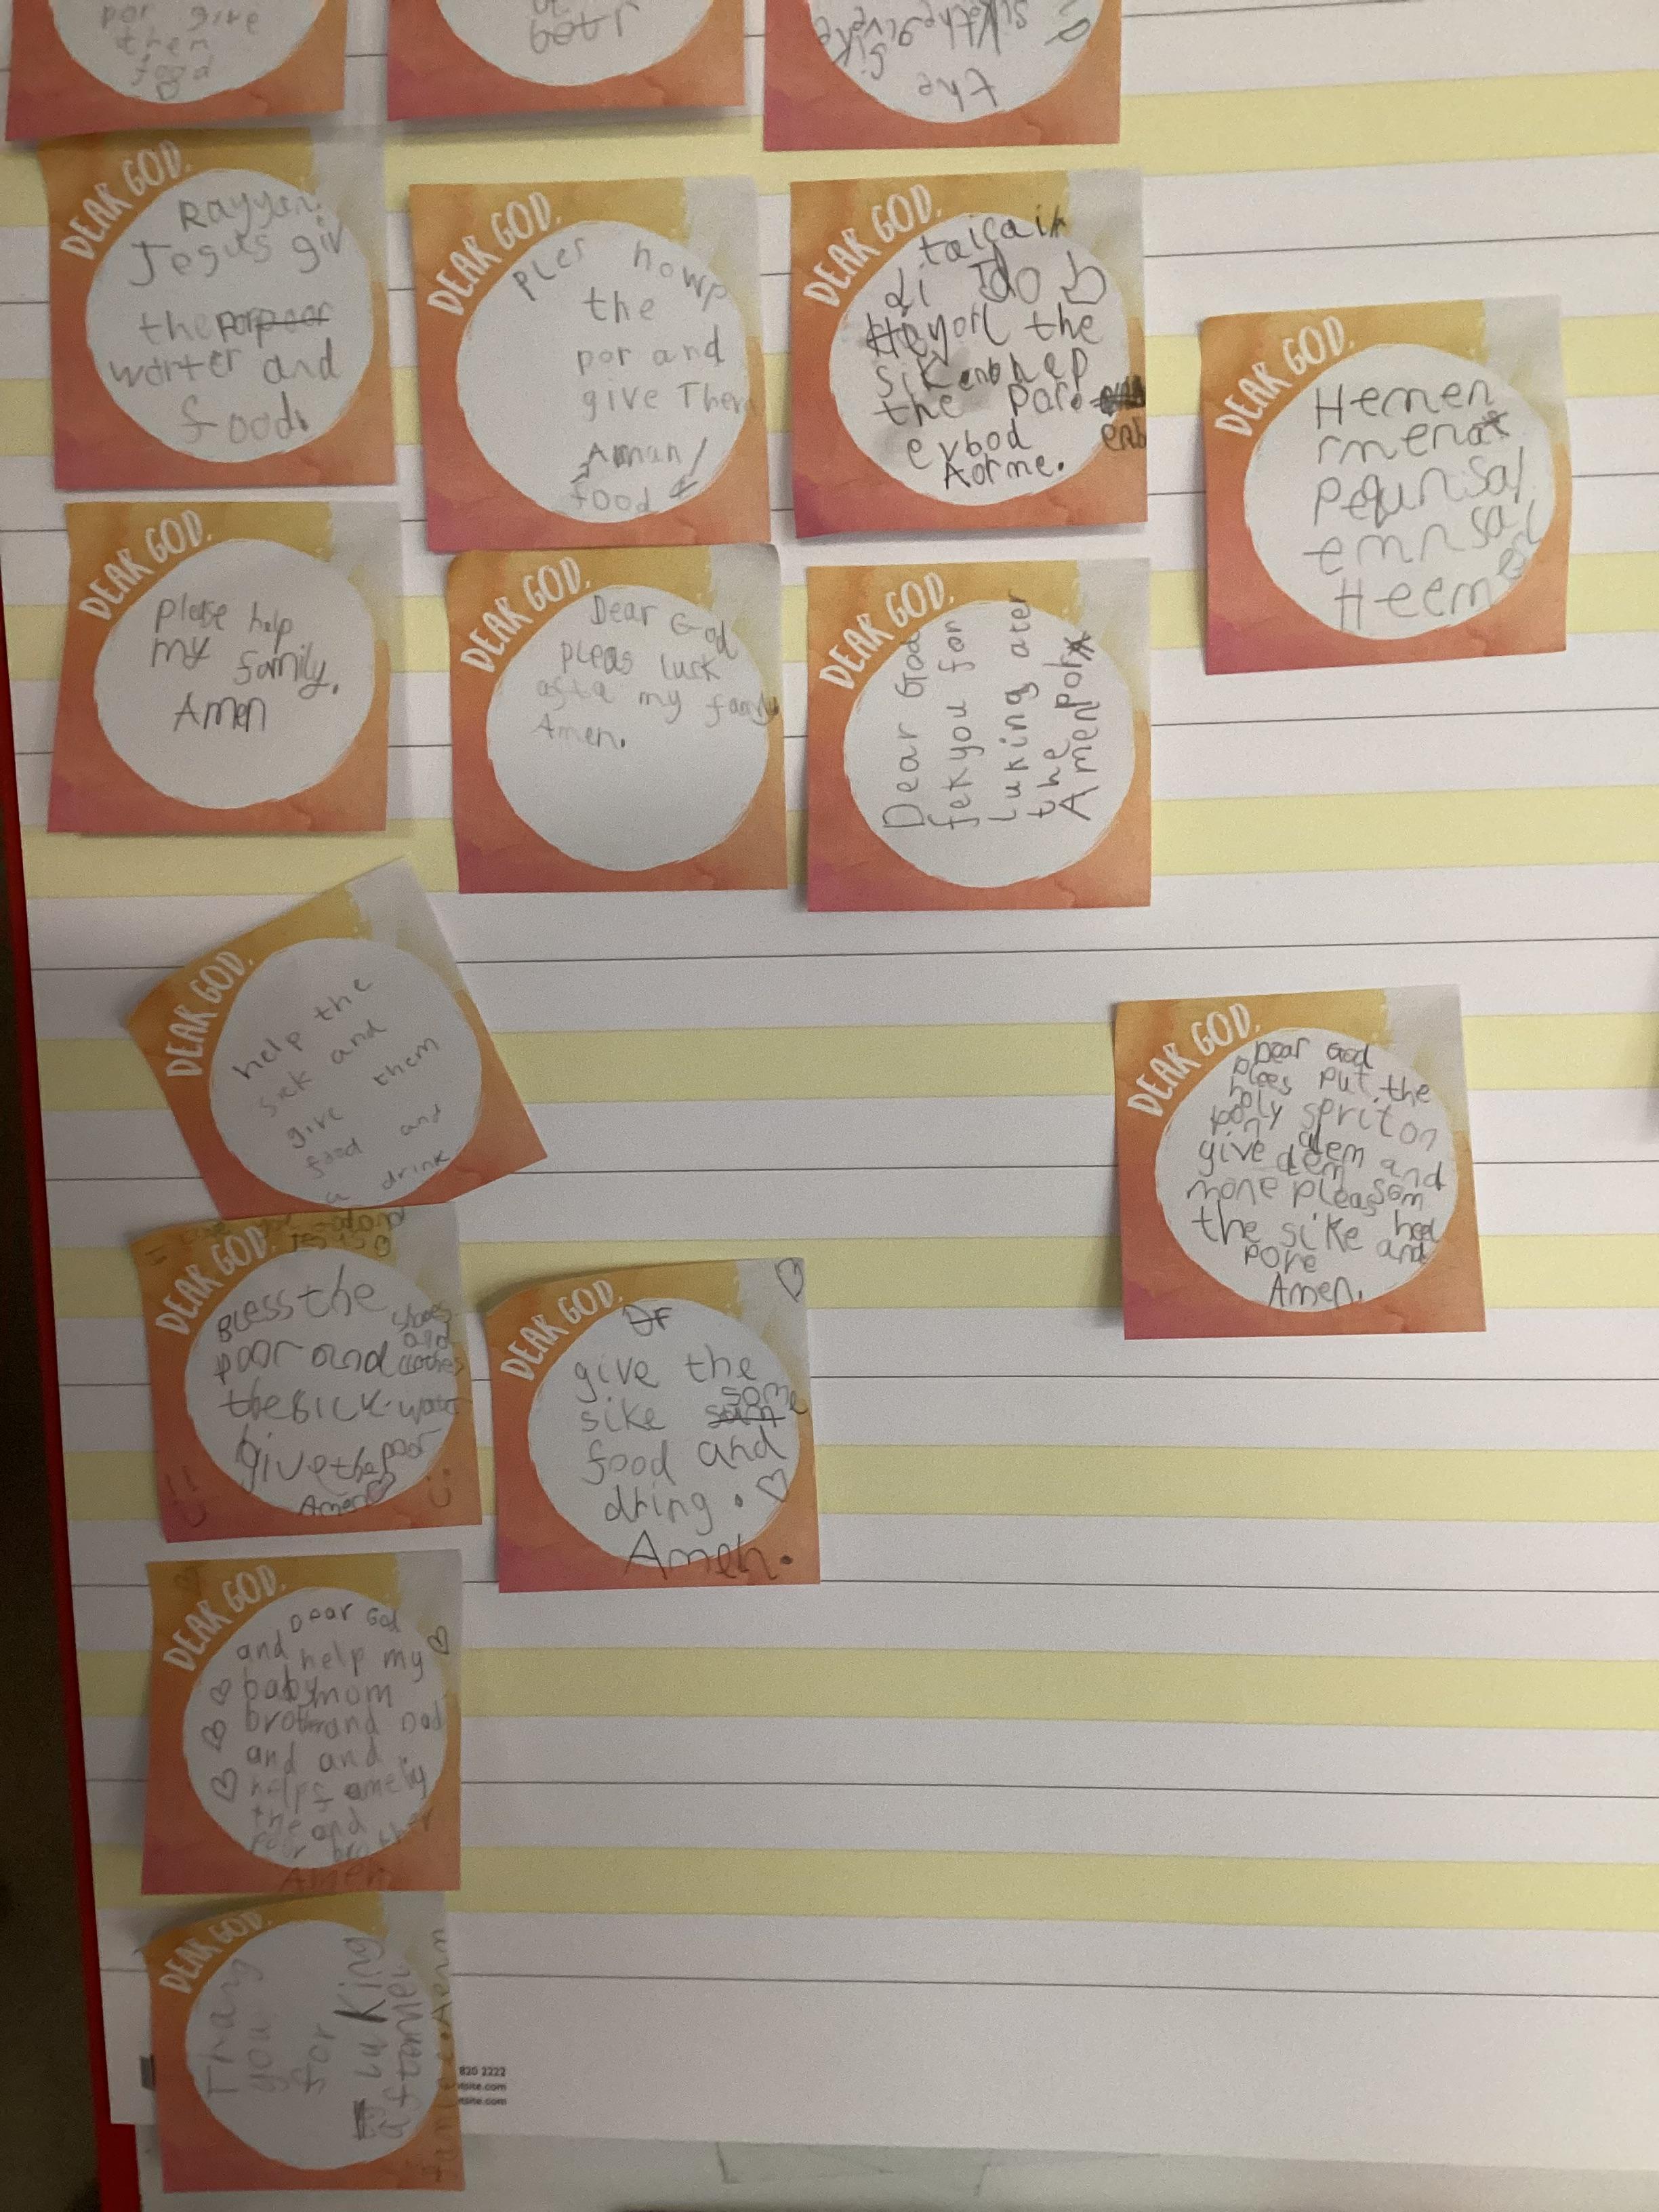 por give
them
food
poor
the
DEAR GOD.
Rayyan.
Jesus giv
the por poor
worter and
food.
DEAR GOD.
ples howp
the
por and
give Them
Aman/
food
DEAR GOD.
di Ido
the
sik enb hep
the Por.
enb
evbod
Aorme.
DEAR GOD.
Hemen
rmena
pequnsal
emnsal
Heem
DEAR GOD.
please help
my family.
Amen
DEAR GOD.
Dear God
pleas luck
afta my family
Amen.
DEAR GOD.
Dear God
fekyou for
luking ater
the por
Amen
DEAR GOD.
help the
sick and
give them
food and
a drink
DEAR GOD.
Dear God
plees put the
holy sprit on
give dem and
mone pleas som
the sike heel
pore and
Amen.
DEAR GOD.
Jesus
Bless the
shoes
and
poor and clothes
the sick. water
give the poor
Amen
DEAR GOD.
give the
some
sike
food and
dring.
Ameh.
DEAR GOD.
Dear God
and help my
baby mom
brother and Dad
and and
help famely
the and
poor brother
Amen
DEAR GOD.
Thang
you
for
luking
after mei
820 2222
site.com
tsite.com